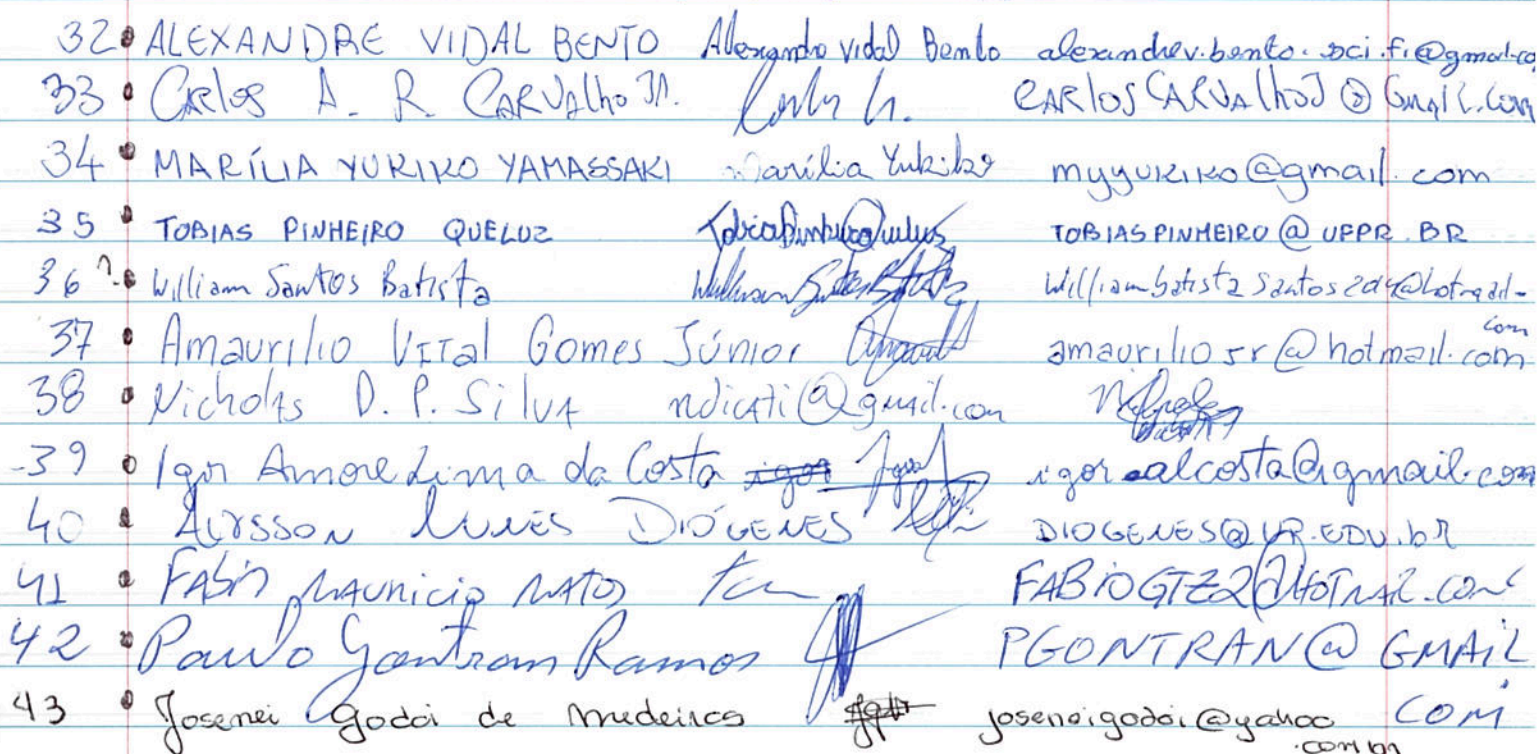 32 ALEXANDRE VIDAL BENTO Alexandre Vidal Bento alexandrev.bento.sci.fi@gmail.co
33 Carlos A. R. CARVAlho JR. CARlosCARVAlhoJ@Gmail.com
34 MARÍLIA YURIKO YAMASSAKI Marília Yukiko myyuriko@gmail.com
35 TOBIAS PINHEIRO QUELUZ TOBIASPINHEIRO@UFPR.BR
36 William Santos Batista Williambatistasantos2014@hotmail.
com
37 Amaurilio Vital Gomes Júnior amauriliojr@hotmail.com
38 Nicholas D. P. Silva ndicati@gmail.com
39 Igor Amore Lima da Costa igor Igor igoralcosta@gmail.com
40 Alysson Nunes DIÓGENES DIOGENES@UP.EDU.bR
41 FABio MAURICIO MATOS FABIOGTZ2@HOTMAIL.COM
42 Paulo Gontran Ramos PGONTRAN@GMAIL
COM
43 Josenei Godoi de Medeiros joseneigodoi@yahoo
.com